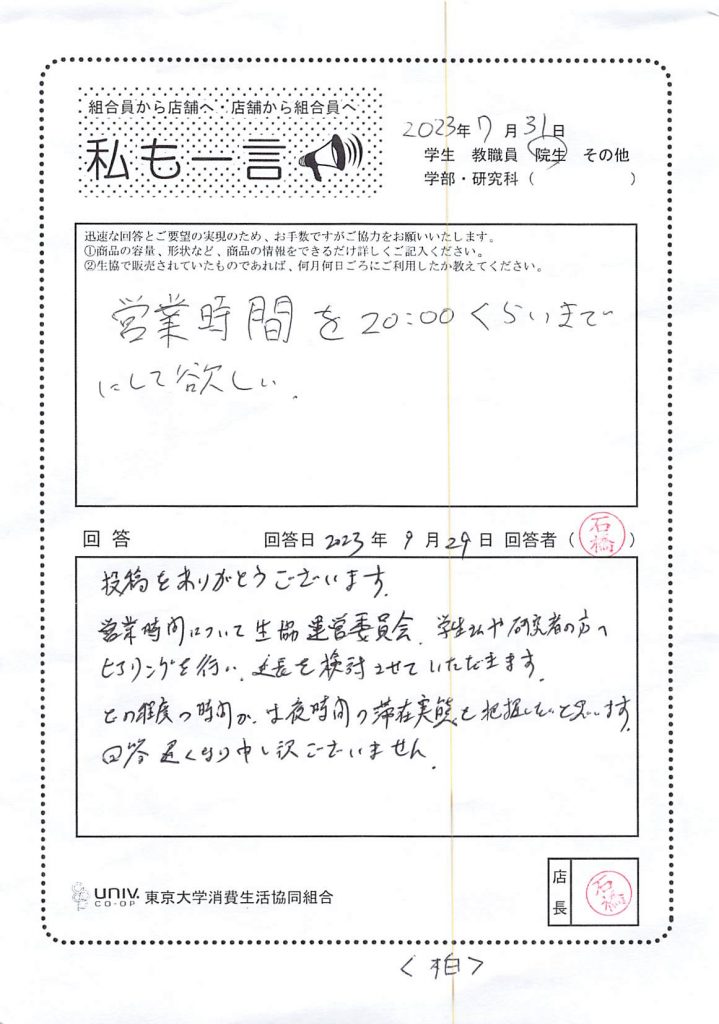 組合員から店舗へ・店舗から組合員へ
私も一言
2023年7月31日
学生 教職員 院生 その他
学部・研究科( )
迅速な回答とご要望の実現のため、お手数ですがご協力をお願いいたします。
①商品の容量、形状など、商品の情報をできるだけ詳しくご記入ください。
②生協で販売されていたものであれば、何月何日ごろにご利用したか教えてください。
営業時間を20:00くらいまで
にして欲しい.
回答 回答日 2023年 9月29日 回答者(石橋)
投稿をありがとうございます.
営業時間について生協運営委員会、学生さんや研究者の方へ
ヒアリングを行い、延長を検討させていただきます.
どの程度の時間か、夜時間の滞在実態を把握したいと思います.
回答遅くなり申し訳ございません.
UNIV.
CO-OP
東京大学消費生活協同組合
店長
石橋
<柏>